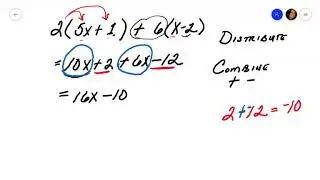 2(5x+1) + 6(x-2)
= 10x+2 +6x-12
= 16x-10
DISTRIBUTE
COMBINE
+ -
2+-12=-10